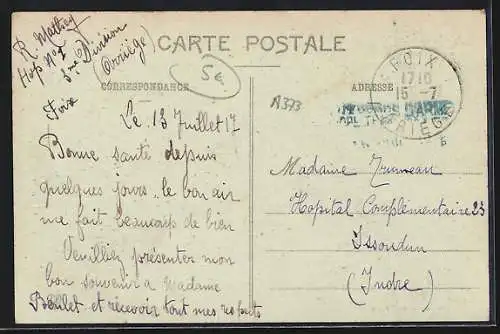 R. Mathey
Hop. No 7
3ème Division
(Arriège)
Foix
CARTE POSTALE
CORRESPONDANCE
5e
ADRESSE
A373
FOIX
1710
15-7
ARIÈGE
Le 13 Juillet 17
Bonne santé depuis
quelques jours. le bon air
me fait beaucoup de bien
Veuilliez présenter mon
bon souvenir à Madame
Boulet et recevoir tout mes respects
Madame
Hopital Complémentaire 23
Issoudun
(Indre)